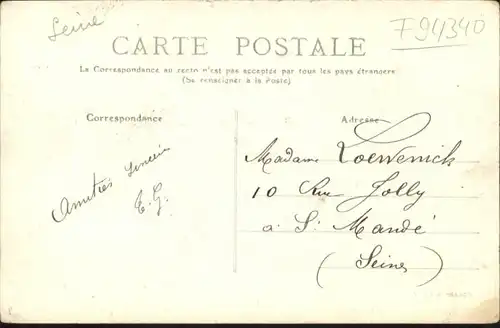 Seine
F 94340
CARTE POSTALE
La Correspondance au recto n'est pas acceptée par tous les pays étrangers
(Se renseigner à la Poste)
Correspondance
Adresse
Amitiés sincères
E. G.
Madame Loewenick
10 Rue Jolly
a St Mandé
(Seine)